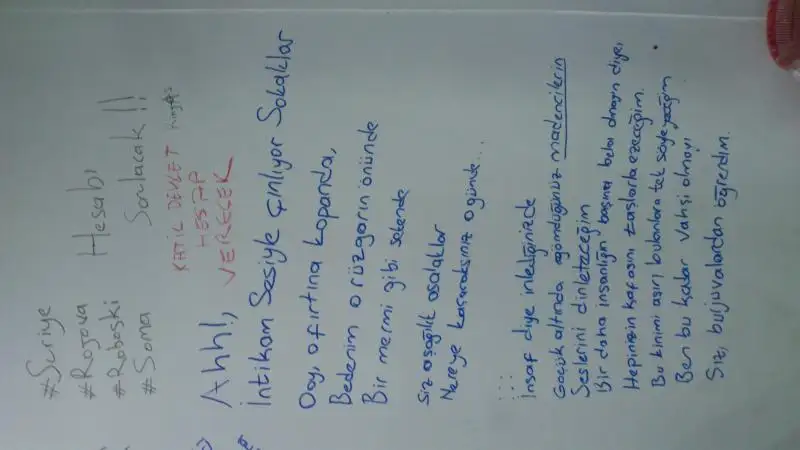 #Suriye
#Rojova
#Roboski
#Soma
Hesabı
Sorulacak!!
KATİL DEVLET
HESAP
VERECEK
Ahh!,
İntikam Sesiyle çınlıyor Sokaklar
Ooy, o fırtına kopanda,
Bedenim o rüzgarın önünde
Bir mermi gibi sekende
siz aşağılık asalaklar
Nereye kaçacaksınız o günde...
...
insaf diye inlediğinizde
Göçük altında gömdüğünüz madencilerin
Seslerini dinleteceğim
Bir daha insanlığın başına bela olmayın diye,
Hepinizin kafasını taşlarla ezeceğim.
Bu kinimi aşırı bulanlara tek söyleyeceğim
Ben bu kadar vahşi olmayı
Siz, burjuvalardan öğrendim.